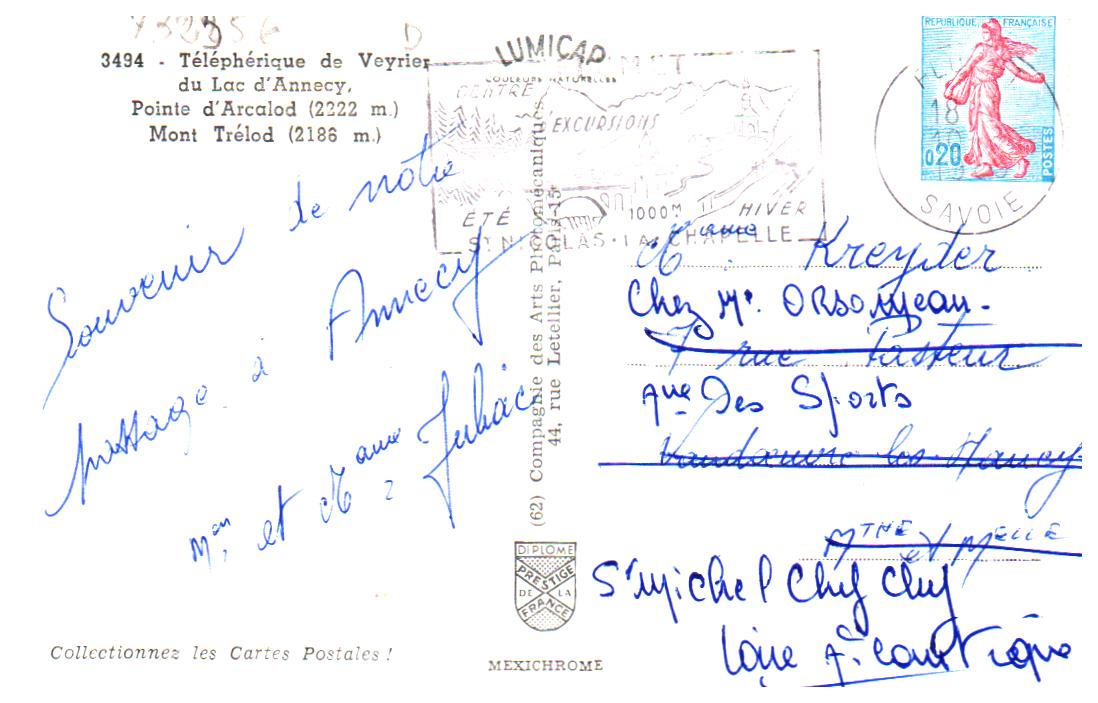 3494 - Téléphérique de Veyrier
du Lac d'Annecy,
Pointe d'Arcalod (2222 m.)
Mont Trélod (2186 m.)
Souvenir de notre
passage à Annecy
Mr et Mame Juliac
Collectionnez les Cartes Postales !
LUMICAP
COULEURS NATURELLES
(62) Compagnie des Arts Photomécaniques,
44, rue Letellier, Paris-15e
DIPLOME
PRESTIGE
DE LA
FRANCE
MEXICHROME
CENTRE
EXCURSIONS
ÉTÉ
1000M
HIVER
ST NICOLAS-LA-CHAPELLE
REPUBLIQUE FRANÇAISE
0,20
POSTES
18
SAVOIE
Mame Kreyder
Chez Mr. ORSO
7 rue Pasteur
Des Sports
Vandœuvre les Nancy
MTHE et MELLE
St Michel Chef Chef
Loire Atlantique